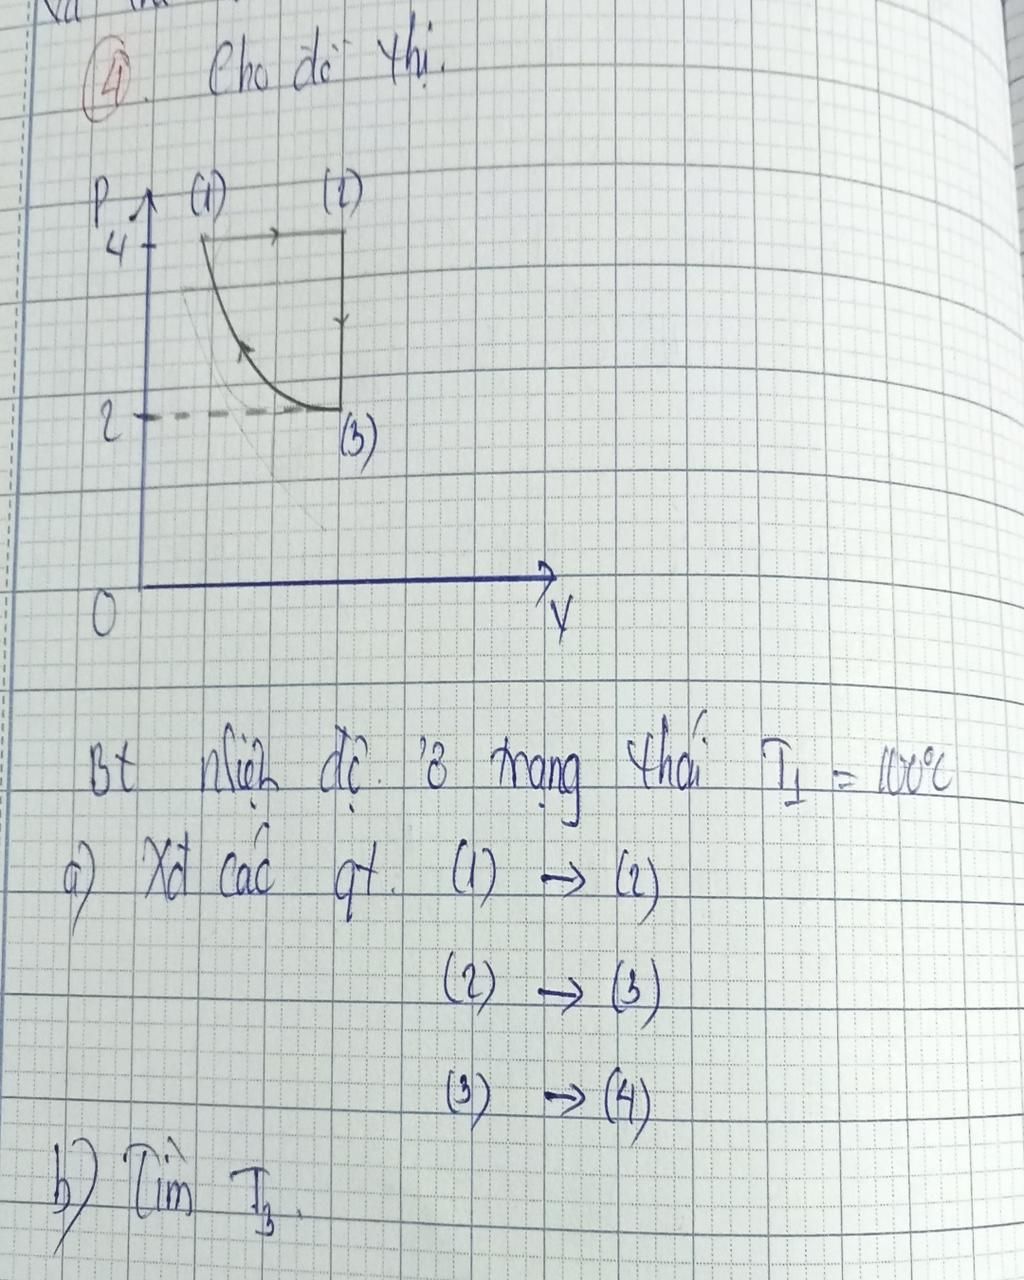 ④. Cho đồ thị.
P (1) (2)
4
2 (3)
O V
Bt nhiệt độ ở trạng thái T₁ = 100°C
a) Xđ các qt. (1) → (2)
(2) → (3)
(3) → (4)
b) Tìm T₃.